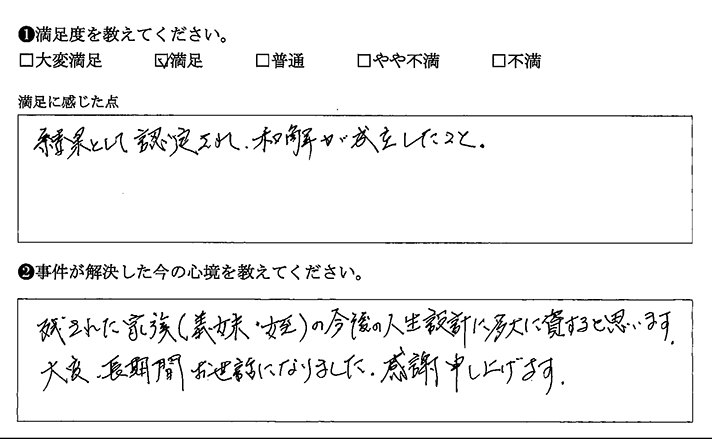 ❶満足度を教えてください。
□大変満足 ☑満足 □普通 □やや不満 □不満
満足に感じた点
結果として認定され、和解が成立したこと。
❷事件が解決した今の心境を教えてください。
残された家族(義妹・姪)の今後の人生設計に多大に資すると思います。
大変、長期間お世話になりました。感謝申し上げます。